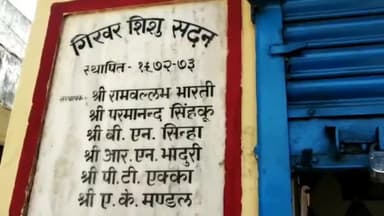 गिरवर शिशु सदन
स्थापित - १९७२-७३
संस्थापक: श्री रामवल्लभ भारती
श्री परमानन्द सिंहकू
श्री बी. एन. सिन्हा
श्री आर. एन. भादुरी
श्री पी. टी. एक्का
श्री ए. के. मण्डल